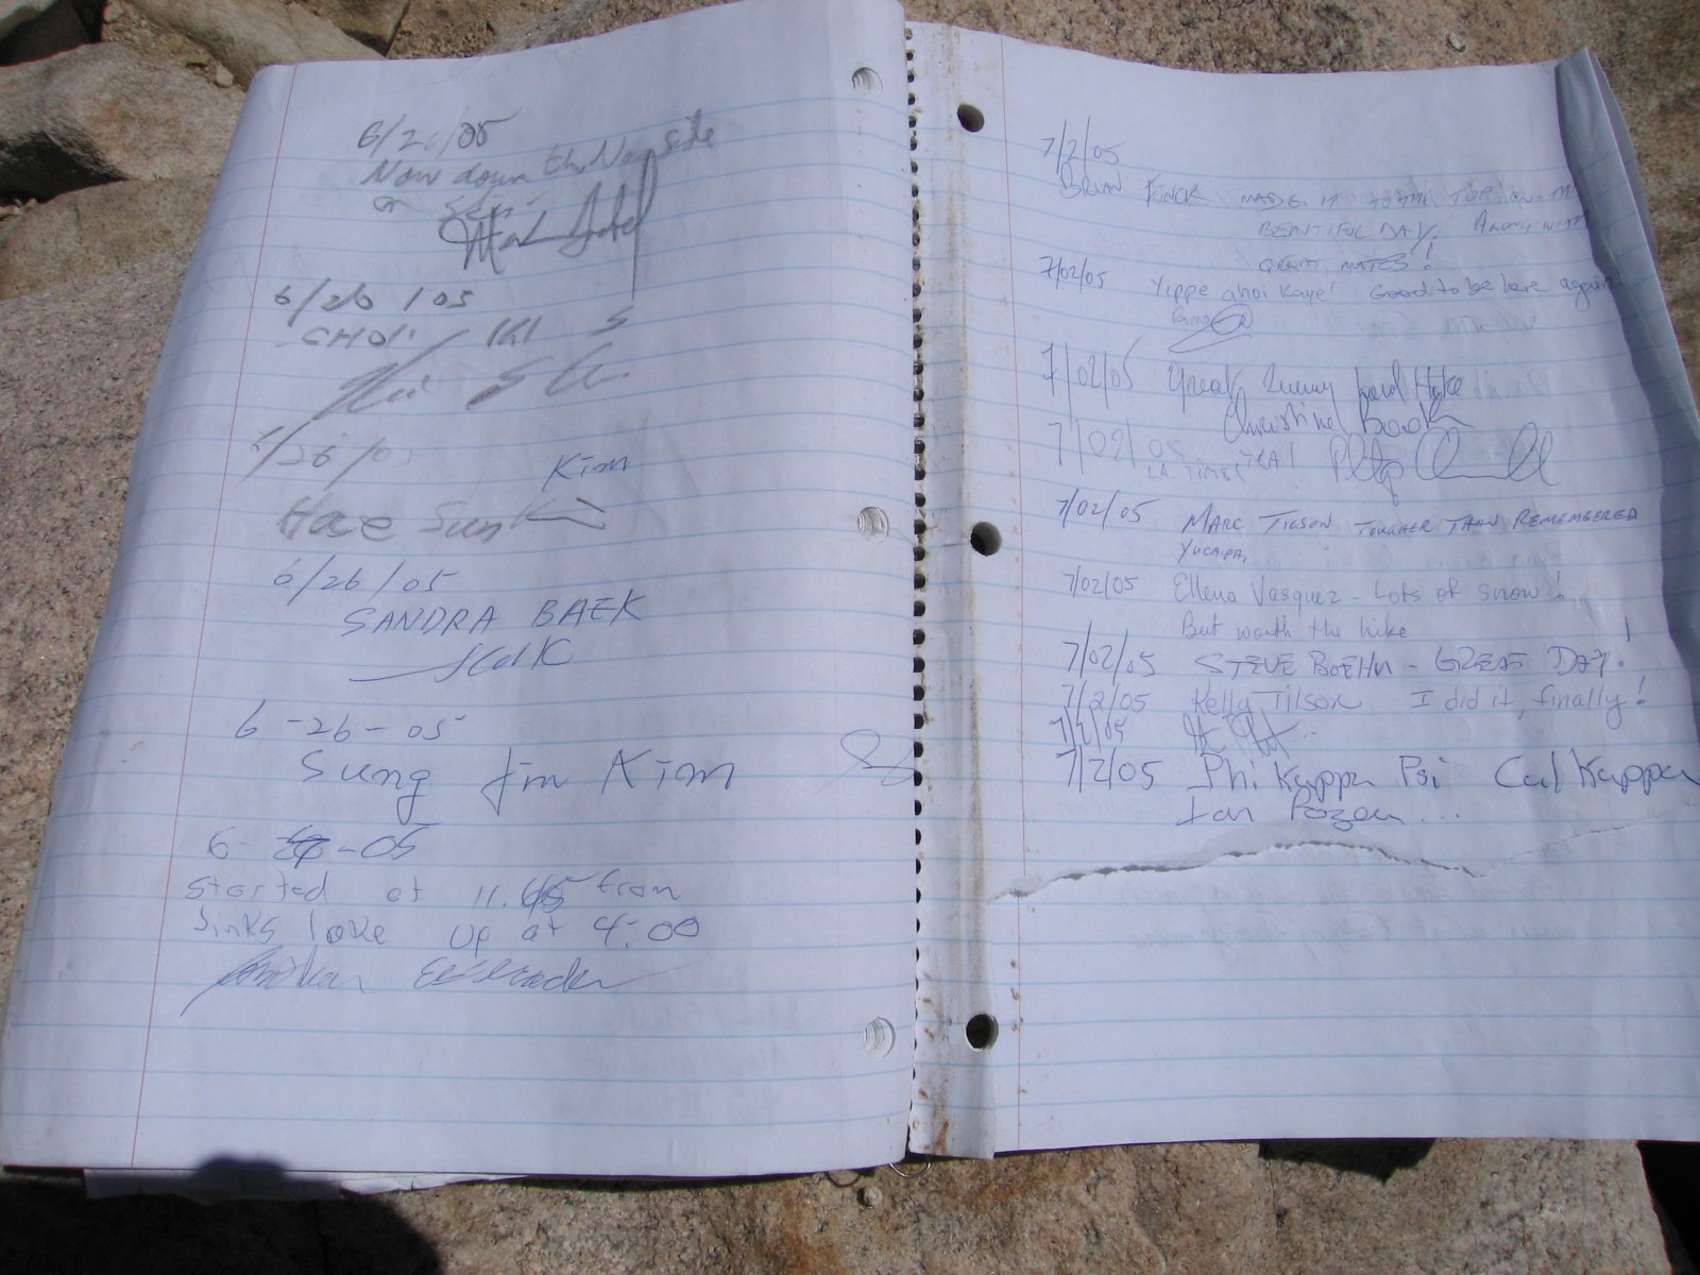 6/26/05
Now down the No side
on
6/26/05
CHOI KI S
/26/05
Kim
Hae Sun
6/26/05
SANDRA BAEK
6-26-05
Sung Jin Kim
6- -05
started at 11. from
Jinks lake up at 4:00
7/2/05
BRIAN FINCK MADE IT TO THE TOP ON A
BEAUTIFUL DAY. ALONG WITH
GREAT MATES!
7/02/05 Yippe ahoi Kaye! Good to be here again
7/02/05 Great, hard Hike
Christine
7/02/05
L.A. TIMES
7/02/05 MARC TILSON TOUGHER THAN REMEMBERED
YUCAIPA,
7/02/05 Ellena Vasquez - Lots of snow!
But worth the hike
7/02/05 STEVE BOEHM - GREAT DAY!
7/2/05 Kelly Tilson I did it, finally!
7/2/05
7/2/05 Phi Kappa Psi Cal Kappa
Ian Pozen...